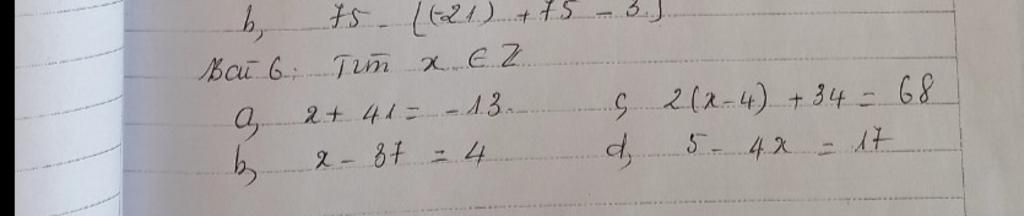 b, 75 - [(-21) + 75 - 3]
Bài 6: Tìm x ∈ Z
a, x + 41 = -13. c, 2(x-4) + 34 = 68
b, x - 37 = 4 d, 5 - 4x = 17